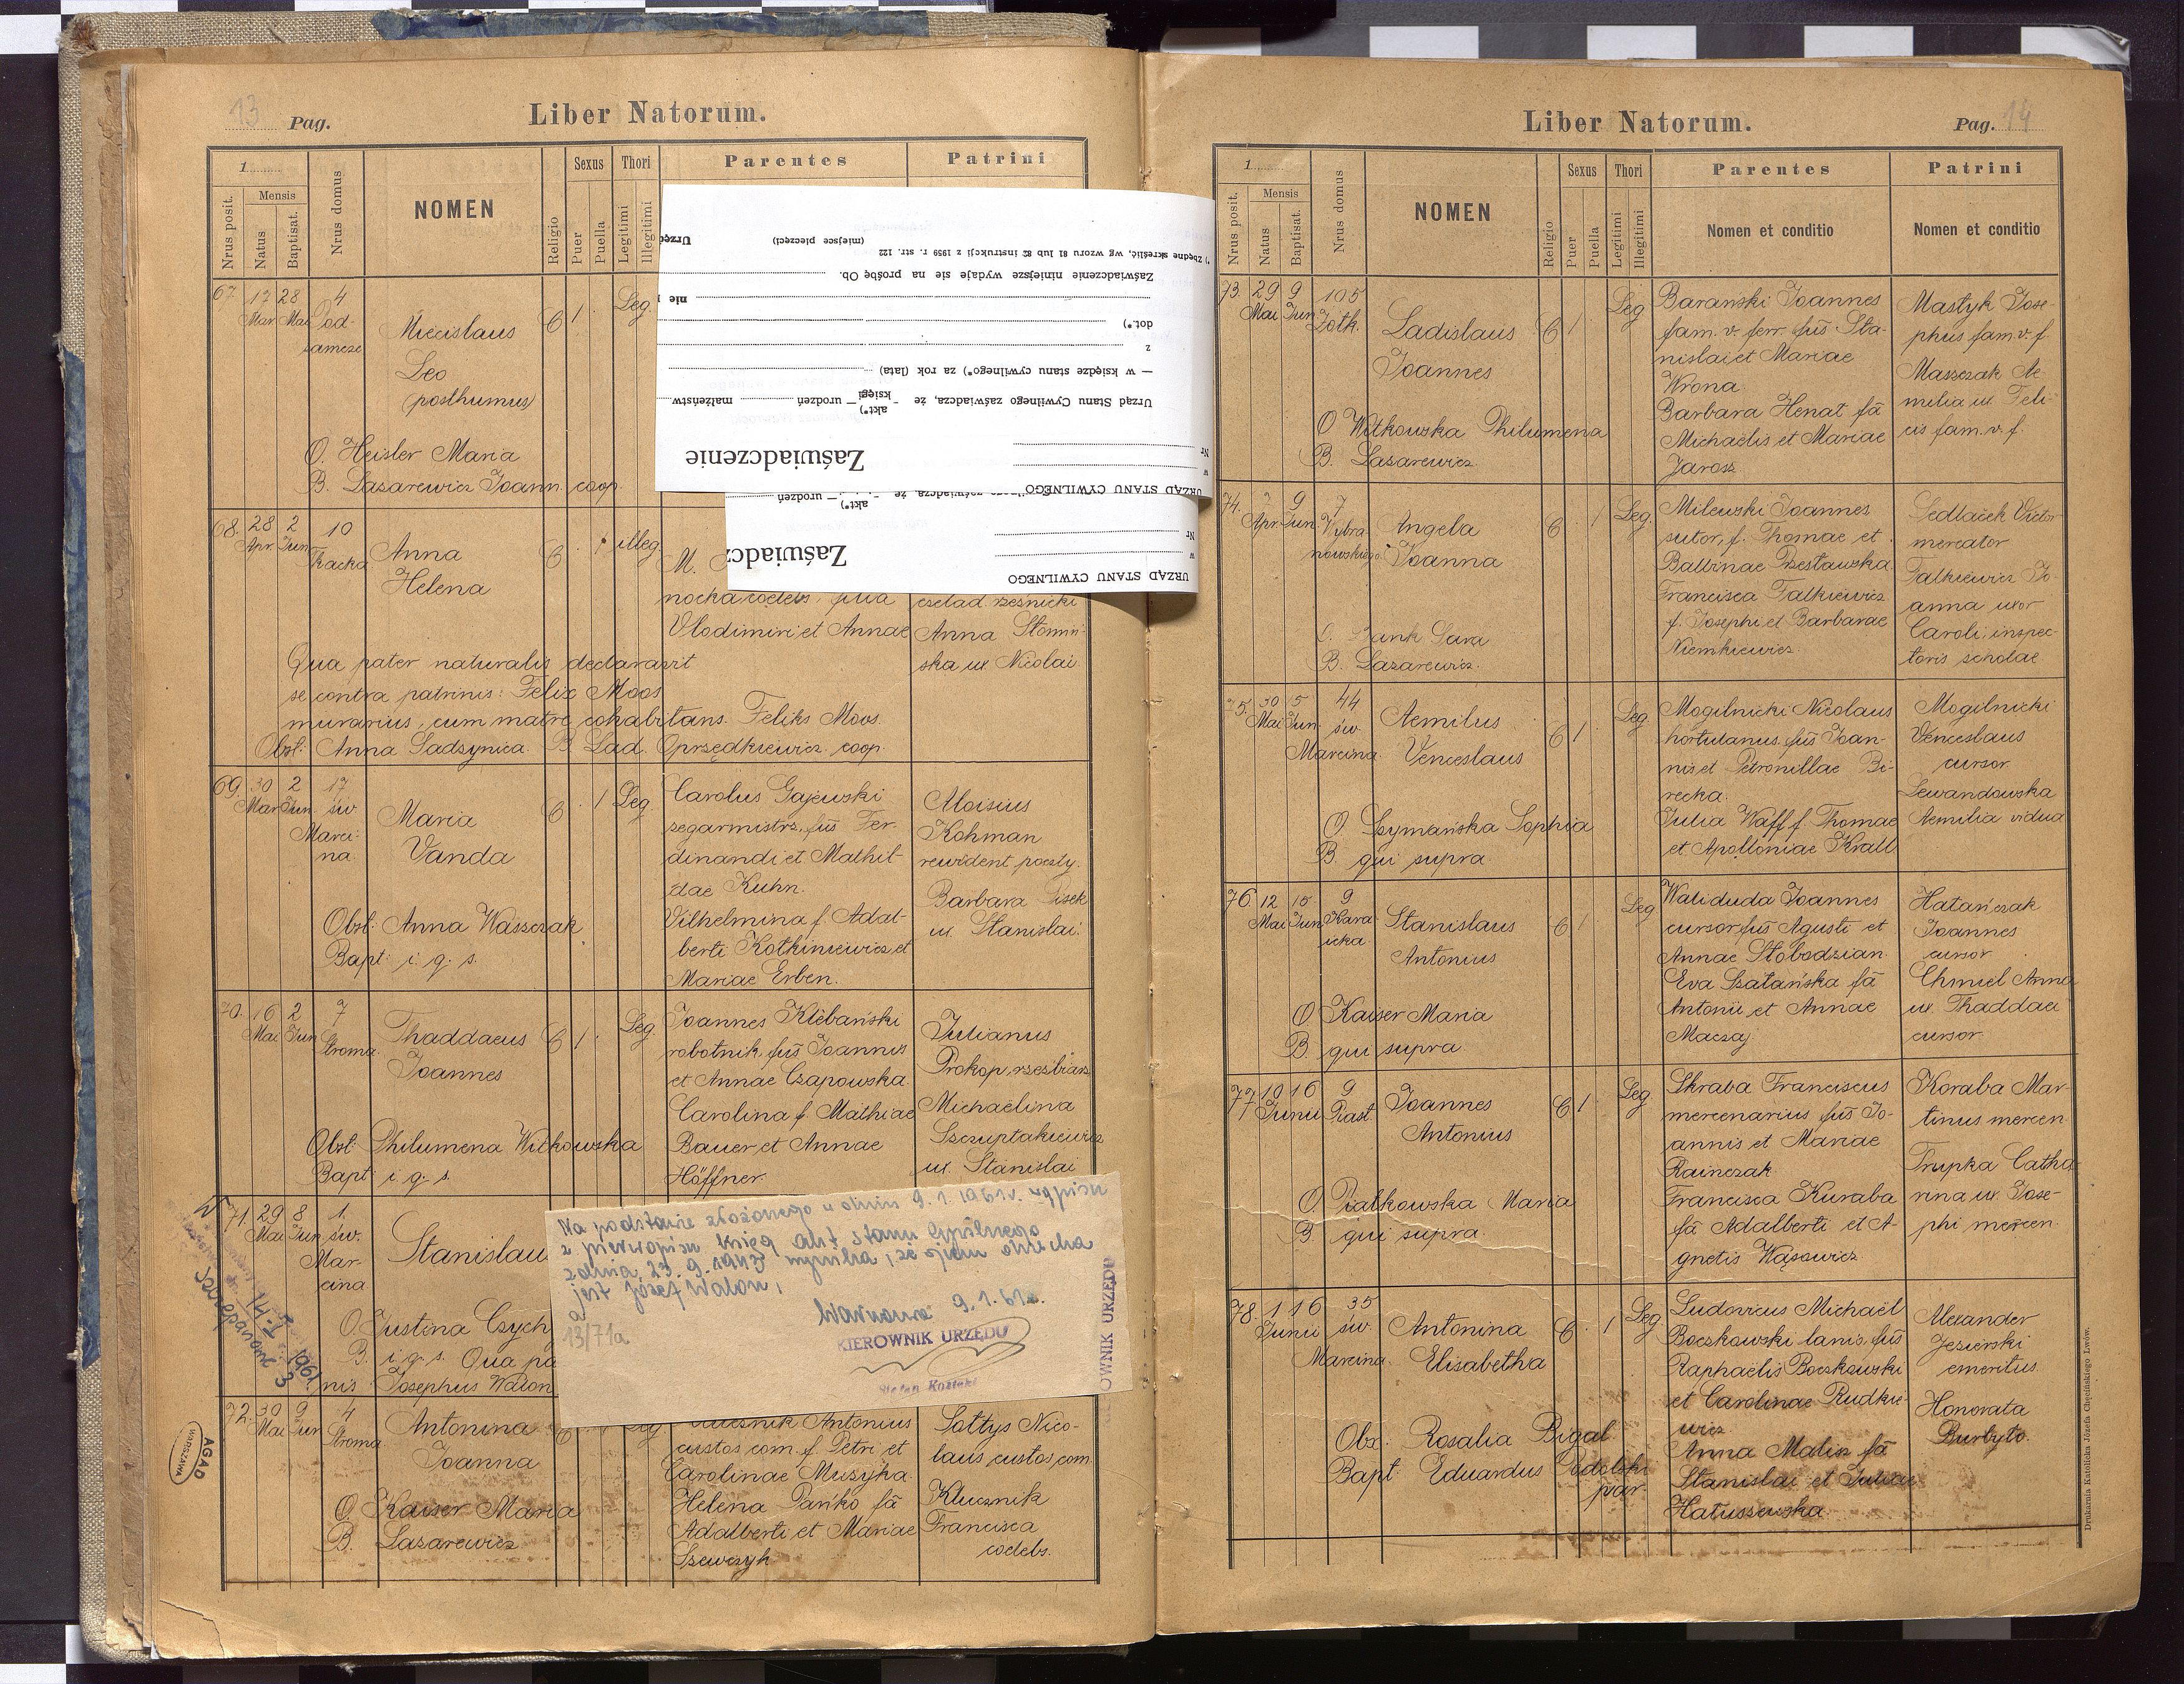 13 Pag.
Liber Natorum.
1.
Nrus posit.
Mensis
Natus
Baptisat.
Nrus domus
NOMEN
Religio
Sexus
Puer
Puella
Thori
Legitimi
Illegitimi
Parentes
Patrini
67 17 Mar 28 Mai 4
Miecislaus C 1 Leg.
Leo
(posthumus)
O. Heisler Maria
B. Lazarewicz Joann. coop.
68. 28 Apr. 2 Jun. 10 Tkacka
Anna C illeg.
Helena
M.
Vlodimiri et Annae
Anna
ska ux. Nicolai
Qua pater naturalis declaravit
se contra patrinis: Felix Moos
murarius, cum matre cohabitans. Feliks Moos.
Obst: Anna Sadzynica. B. Lad. Oprzędkiewicz coop.
69. 30 Mar 2 Jun. 17 św. Marci-
na
Maria C 1 Leg.
Vanda
Obst: Anna Waszczak
Bapt: i. q. s.
Carolus Gajewski
zegarmistrz, fūs Fer-
dinandi et Mathil-
dae Kuhn.
Vilhelmina f. Adal-
berti Kotkiniewicz et
Mariae Erben.
Aloisius
Kohman
rewident poczty.
Barbara Pisek
ux. Stanislai.
70. 16 Mai 2 Jun 7 Stroma
Thaddaeus C 1 Leg.
Joannes
Obst: Philumena Witkowska
Bapt: i. q. s.
Joannes Klebański
robotnik, fūs Joannis
et Annae Czapowska.
Carolina f. Mathiae
Bauer et Annae
Höffner.
Julianus
Prokop, rzeźbiarz
Michaëlina
ux. Stanislai
71. 29 Mai 8 Jun 1. św.
Mar-
cina
Stanislau
O. Justina Czych
B. i. q. s. Qua pa
nis Josephus Walon
72. 30 Mai 9 Jun 4 Stroma
Antonina C
Joanna
O. Kaiser Maria
B. Lazarewicz
Antonius
custos com. f. Petri et
Carolinae Muzyka.
Helena Pańko fā
Adalberti et Mariae
Szewczyk
Sołtys Nico-
laus, custos com.
Klucznik
Francisca
coelebs.
URZĄD STANU CYWILNEGO
w
Nr
Zaświadczenie
Urząd Stanu Cywilnego zaświadcza, że akt*) księgi — urodzeń małżeństw
— w księdze stanu cywilnego*) za rok (lata)
z
dot.*)
nie
Zaświadczenie niniejsze wydaje się na prośbę Ob.
*) zbędne skreślić, wg wzoru 81 lub 82 instrukcji z 1959 r. str. 122
(miejsce pieczęci)
Urzęd
URZĄD STANU CYWILNEGO
w
Nr
Zaświadcz
akt*) — urodzeń
Na podstawie złożonego w dniu 9. 1. 1961 r. wypisu
z pierwopisu ksiąg akt stanu cywilnego
z dnia 23. 9. 1943 wynika, że ojcem dziecka
jest Józef Walon.
Warszawa 9. 1. 61 r.
13/71a
KIEROWNIK URZĘDU
AGAD
WARSZAWA
Liber Natorum.
Pag. 14
1.
Nrus posit.
Mensis
Natus
Baptisat.
Nrus domus
NOMEN
Religio
Sexus
Puer
Puella
Thori
Legitimi
Illegitimi
Parentes
Nomen et conditio
Patrini
Nomen et conditio
73. 29 Mai 9 Jun 105 Zołk.
Ladislaus C 1 Leg
Joannes
O Witkowska Philumena
B. Lazarewicz
Barański Joannes
fam. v. ferr. fūs Sta-
nislai et Mariae
Wrona.
Barbara Henat fā
Michaëlis et Mariae
Jarosz
Mastyk Jose-
phus fam. v. f.
Maszczak Ae-
milia ux. Feli-
cis fam. v. f.
74. Apr. 9 Jun. 7 Wybra
nowskiego
Angela C 1 Leg.
Joanna
O. Sara
B. Lazarewicz.
Milewski Joannes
sutor, f. Thomae et
Balbinae Przestawska.
Francisca Falkiewicz
f. Josephi et Barbarae
Niemkiewicz.
Sedlaček Victor
mercator
Falkiewicz Jo-
anna uxor
Caroli, inspec-
toris scholae
75. 30 Mai 5 Jun. 44 św.
Marcina
Aemilus C 1 Leg.
Venceslaus
O. Szymańska Sophia
B. qui supra
Mogilnicki Nicolaus
hortulanus, fūs Joan-
nis et Petronillae Bi-
recka.
Julia Waff f. Thomae
et Apolloniae Krall
Mogilnicki
Venceslaus
cursor.
Lewandowska
Aemilia vidua
76. 12 Mai 15 Jun 9
Stanislaus C 1 Leg
Antonius
O. Kaiser Maria
B. qui supra.
Waliduda Joannes
cursor, fūs Agusti et
Annae Słobodzian.
Eva Szatańska fā
Antonii et Annae
Maczaj.
Hatańczak
Joannes
cursor
Chmiel Anna
ux. Thaddaei
cursor.
77 10 16 Junii 9 Piast.
Joannes C 1 Leg.
Antonius
O. Piatkowska Maria
B. qui supra.
Skraba Franciscus
mercenarius fūs Jo-
annis et Mariae
Rainczak
Francisca Kuraba
fā Adalberti et A-
gnetis Wąsowicz.
Koraba Mar-
tinus mercen.
Trupka Catha
rina ux. Jose-
phi mercen.
78. 1 16 Junii 35 św.
Marcina
Antonina C. 1 Leg.
Elisabetha
Obx: Rosalia Bigal
Bapt: Eduardus Podolski
par.
Ludovicus Michaël
Boczkowski lanio, fūs
Raphaëlis Boczkowski
et Carolinae Rudkie-
wicz.
Anna Malisz fā
Stanislai et Juliae
Hatuszewska.
Alexander
Jezierski
emeritus.
Honorata
Burbyło.
Drukarnia Katolicka Józefa Chęcińskiego Lwów.